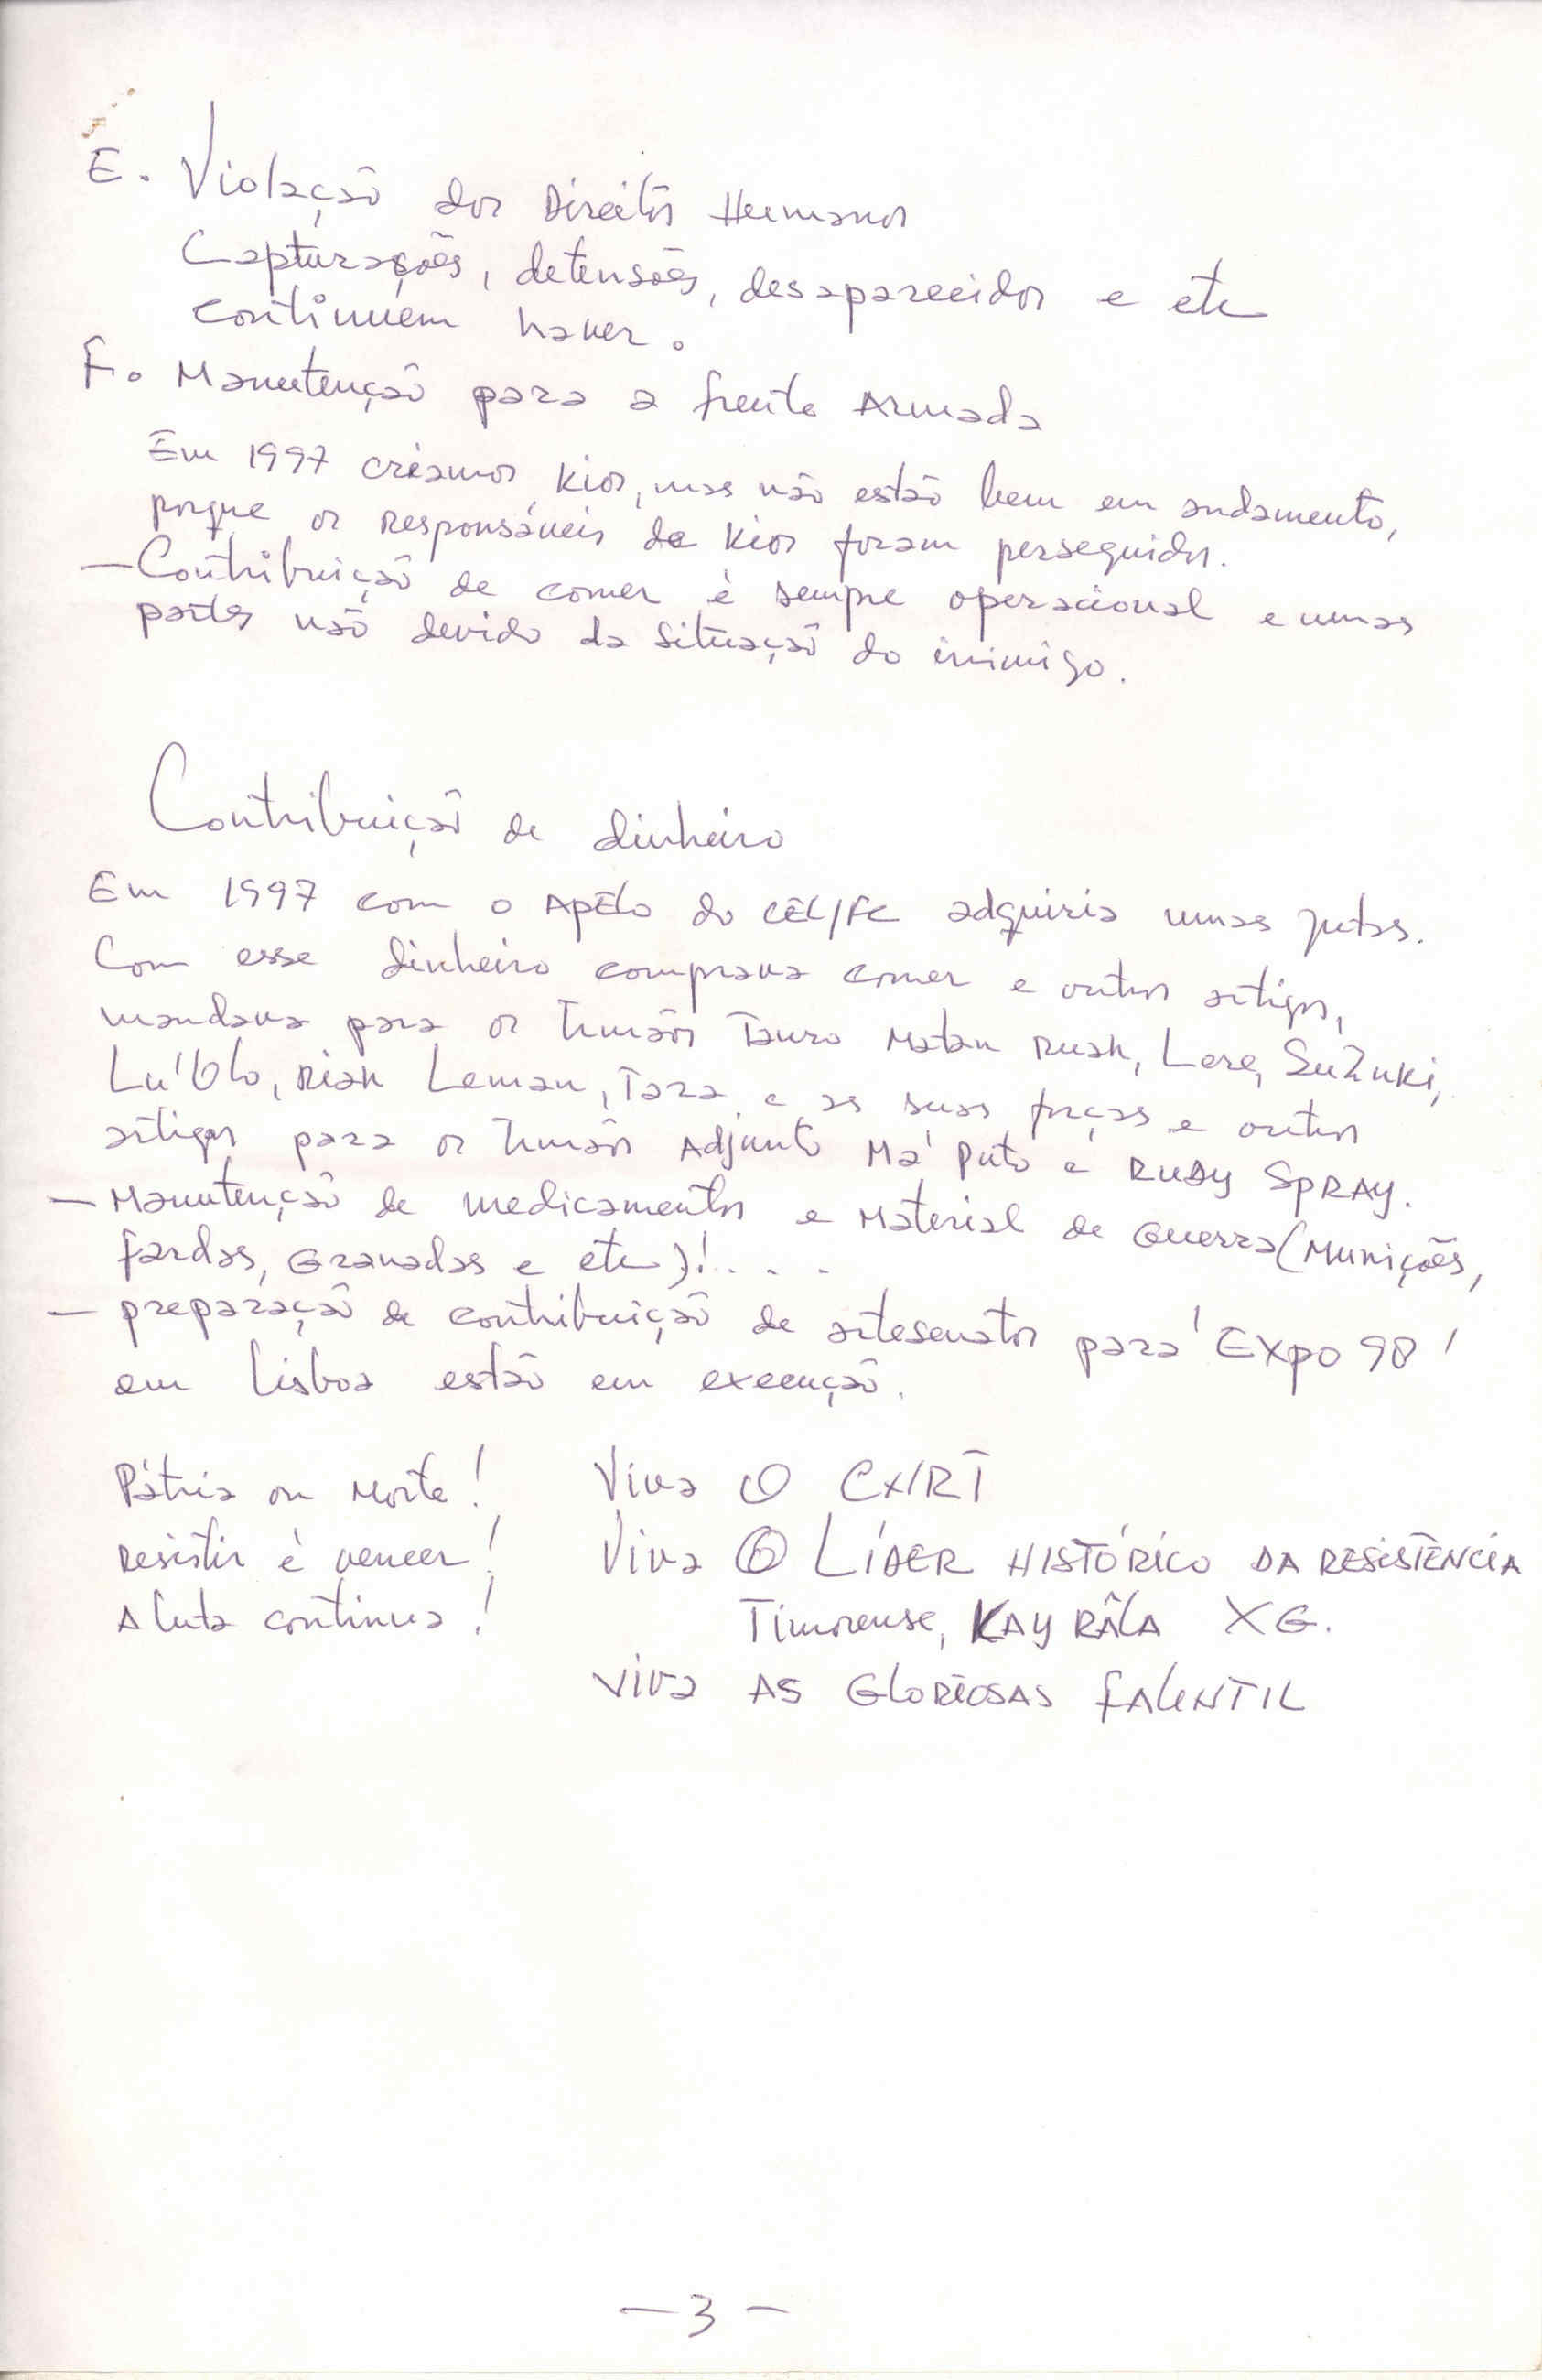 E. Violação dos Direitos Humanos
Capturações, detensões, desaparecidos e etc
continuem haver.
F. Manutenção para a frente Armada
Em 1997 criamos kios, mas não estão bem em andamento,
porque os responsáveis de kios foram perseguidos.
— Contribuição de comer é sempre operacional e umas
partes não devido da situação do inimigo.
Contribuição de dinheiro
Em 1997 com o Apêlo do CEL/FC adquiria umas jutas.
Com esse dinheiro comprava comer e outros artigos,
mandava para os Irmãos Tauro Matan Ruak, Lere, Suzuki,
Lu'Olo, Riak Leman, Tara e as suas forças e outros
artigos para os Irmãos Adjunto Má Puto e RUDY SPRAY.
— Manutenção de medicamentos e Material de Guerra (Munições,
fardas, Granadas e etc)!...
— preparação de contribuição de artesenatos para 'Expo 98'
em Lisboa estão em execução.
Pátria ou Morte! Viva O CX/RT
Resistir é vencer! Viva O LÍDER HISTÓRICO DA RESISTÊNCIA
A luta continua! Timorense, KAY RÂLA XG.
Viva AS GLORIOSAS FALINTIL
— 3 —